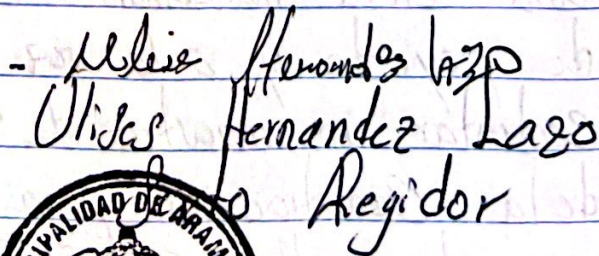 - Ulises Hernandez Lazo
Ulises Hernandez Lazo
Sexto Regidor
IPALIDAD DE ARAM